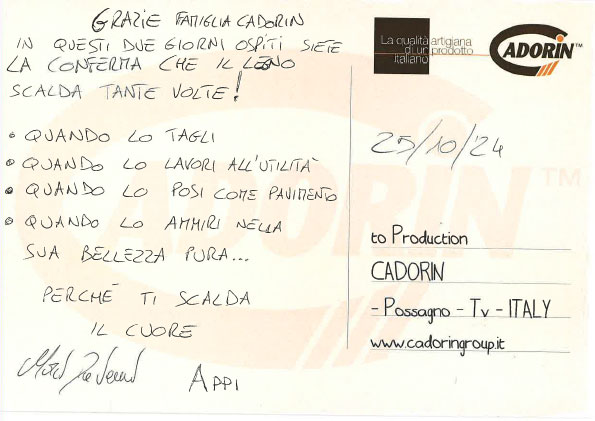 GRAZIE FAMIGLIA CADORIN
IN QUESTI DUE GIORNI OSPITI SIETE
LA CONFERMA CHE IL LEGNO
SCALDA TANTE VOLTE!
• QUANDO LO TAGLI
• QUANDO LO LAVORI ALL'UTILITÀ
• QUANDO LO POSI COME PAVIMENTO
• QUANDO LO AMMIRI NELLA
SUA BELLEZZA PURA...
PERCHÉ TI SCALDA
IL CUORE
APPI
La qualità artigiana
di un prodotto
Italiano
CADORIN™
25/10/'24
to Production
CADORIN
- Possagno - Tv - ITALY
www.cadoringroup.it
CADORIN™